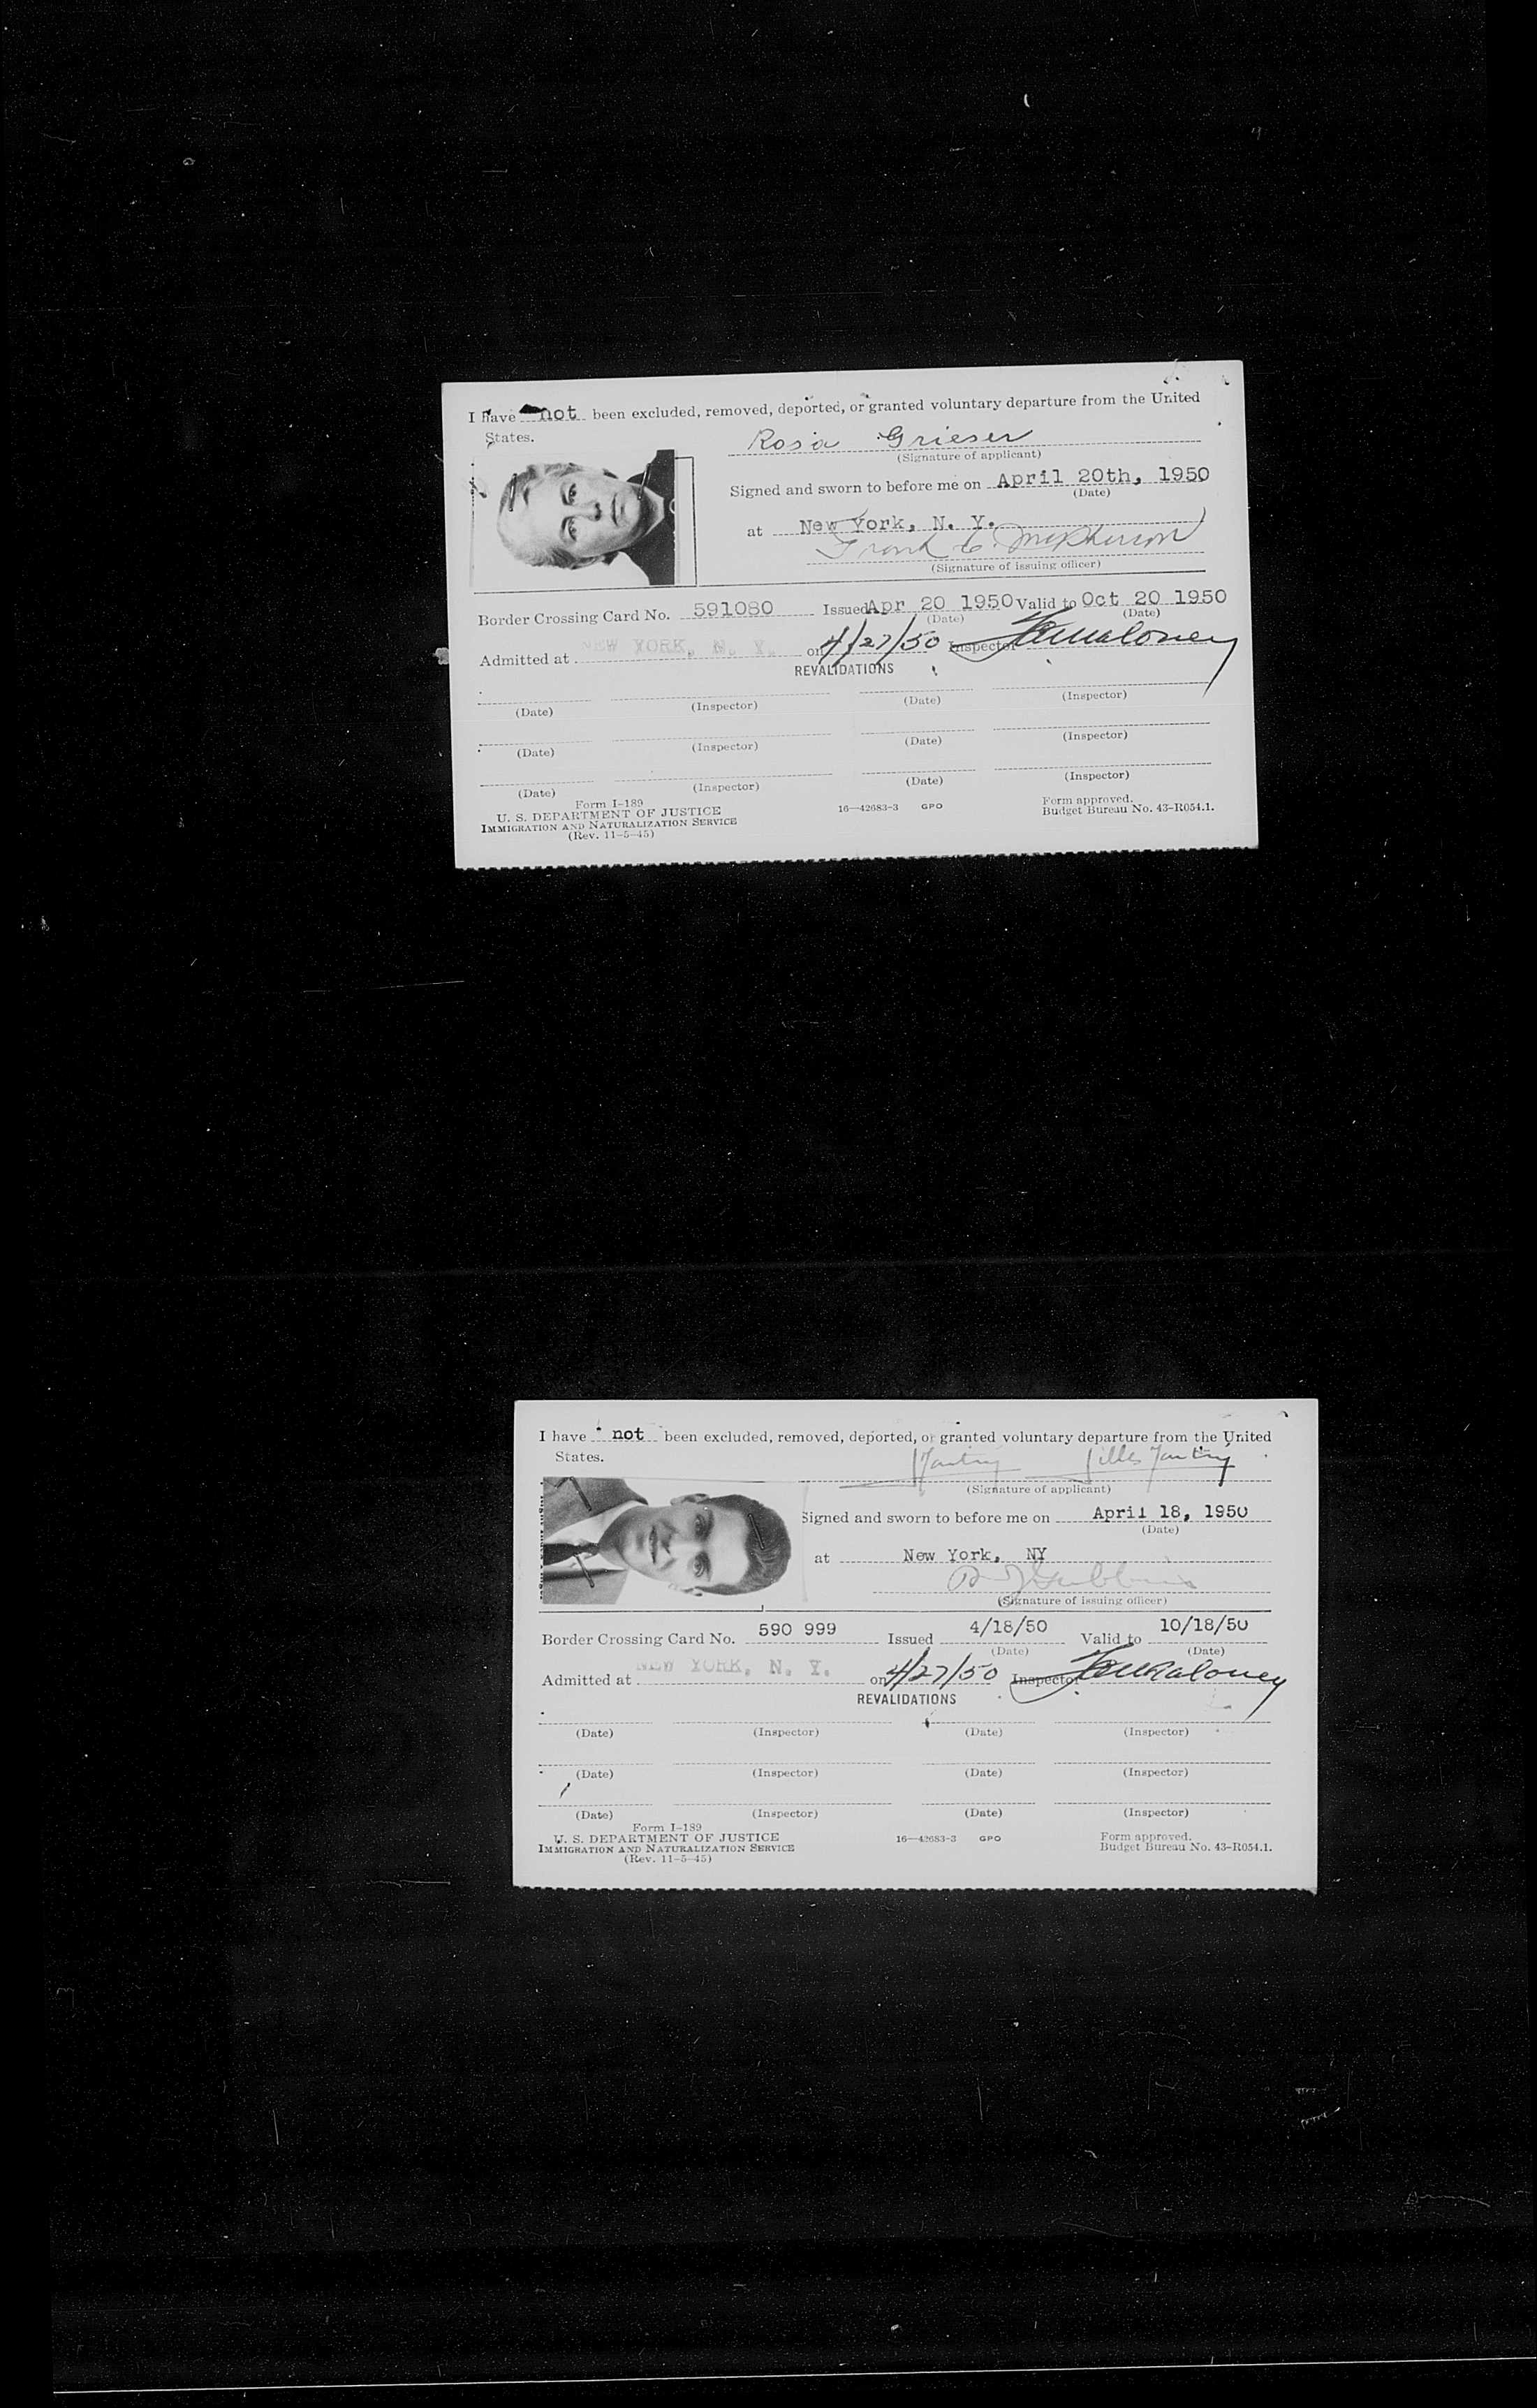 I have not been excluded, removed, deported, or granted voluntary departure from the United
States.
Rosa Grieser
(Signature of applicant)
Signed and sworn to before me on April 20th, 1950
(Date)
at New York, N. Y.
Frank C. McPherson
(Signature of issuing officer)
Border Crossing Card No. 591080 Issued Apr 20 1950 Valid to Oct 20 1950
(Date) (Date)
Admitted at NEW YORK, N. Y. on 4/27/50 Inspector
REVALIDATIONS
(Date) (Inspector) (Date) (Inspector)
(Date) (Inspector) (Date) (Inspector)
(Date) (Inspector) (Date) (Inspector)
Form I-189
U. S. DEPARTMENT OF JUSTICE
IMMIGRATION AND NATURALIZATION SERVICE
(Rev. 11-5-45)
16—42683-3 GPO
Form approved.
Budget Bureau No. 43-R054.1.
I have not been excluded, removed, deported, or granted voluntary departure from the United
States.
(Signature of applicant)
Signed and sworn to before me on April 18, 1950
(Date)
at New York, NY
(Signature of issuing officer)
Border Crossing Card No. 590 999 Issued 4/18/50 Valid to 10/18/50
(Date) (Date)
Admitted at NEW YORK, N. Y. on 4/27/50 Inspector
REVALIDATIONS
(Date) (Inspector) (Date) (Inspector)
(Date) (Inspector) (Date) (Inspector)
(Date) (Inspector) (Date) (Inspector)
Form I-189
U. S. DEPARTMENT OF JUSTICE
IMMIGRATION AND NATURALIZATION SERVICE
(Rev. 11-5-45)
16—42683-3 GPO
Form approved.
Budget Bureau No. 43-R054.1.